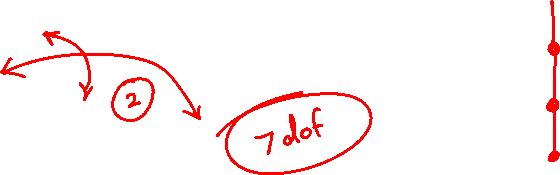 2
7 dof